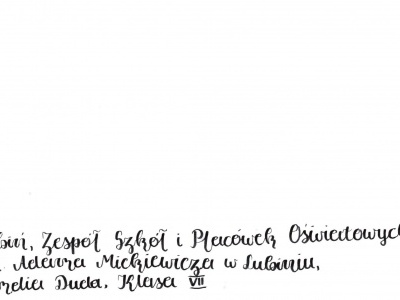 biń, Zespół Szkół i Placówek Oświatowych
. Adama Mickiewicza w Lubiniu,
relia Duda, Klasa VII